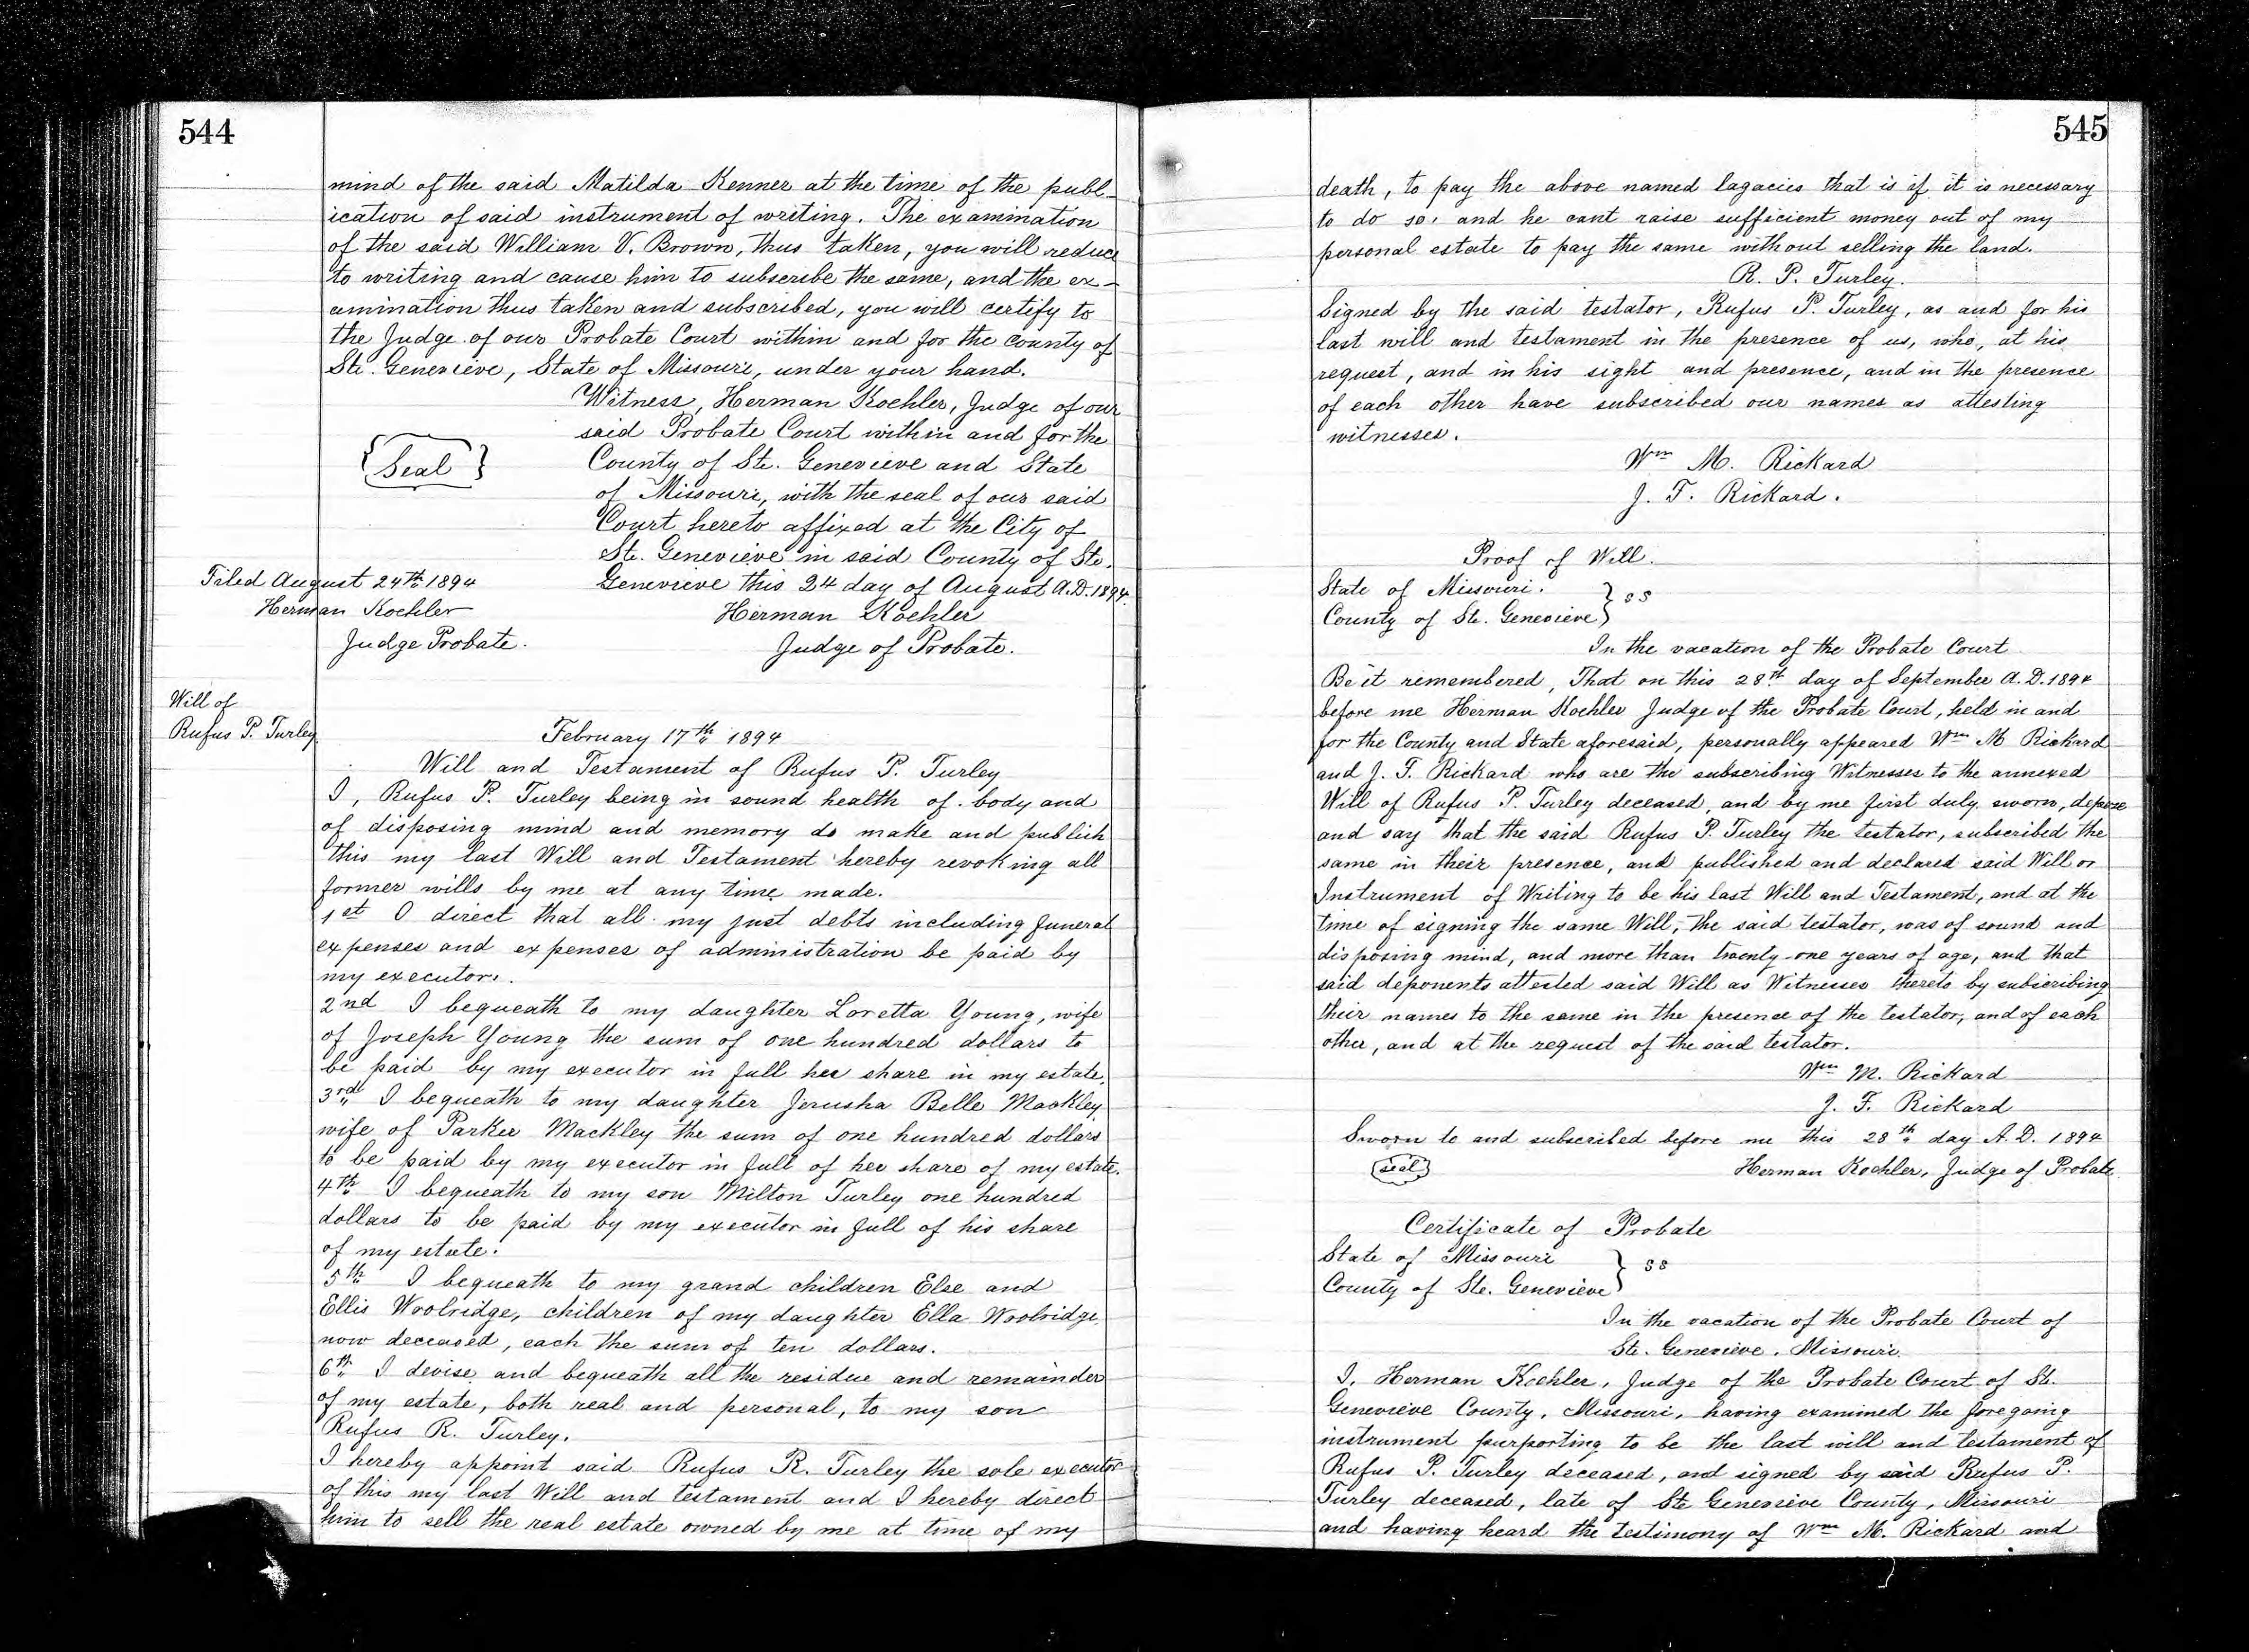 544
mind of the said Matilda Kenner at the time of the publ-
ication of said instrument of writing. The examination
of the said William V. Brown, thus taken, you will reduce
to writing and cause him to subscribe the same, and the ex-
amination thus taken and subscribed, you will certify to
the Judge of our Probate Court within and for the county of
Ste. Genevieve, State of Missouri, under your hand.
Witness, Herman Koehler, Judge of our
said Probate Court within and for the
{Seal}
County of Ste. Genevieve and State
of Missouri, with the seal of our said
Court hereto affixed at the City of
Ste. Genevieve in said County of Ste.
Genevieve this 24 day of August A.D. 1894.
Herman Koehler
Judge of Probate.
Filed August 24th 1894
Herman Koehler
Judge Probate.
Will of
Rufus P. Turley
February 17th 1894
Will and Testament of Rufus P. Turley
I, Rufus P. Turley being in sound health of body and
of disposing mind and memory do make and publish
this my last Will and Testament hereby revoking all
former wills by me at any time made.
1st I direct that all my just debts including funeral
expenses and expenses of administration be paid by
my executor.
2nd I bequeath to my daughter Loretta Young, wife
of Joseph Young the sum of one hundred dollars to
be paid by my executor in full her share in my estate.
3rd I bequeath to my daughter Jerusha Belle Mackley
wife of Parker Mackley the sum of one hundred dollars
to be paid by my executor in full of her share of my estate.
4th I bequeath to my son Milton Turley one hundred
dollars to be paid by my executor in full of his share
of my estate.
5th I bequeath to my grand children Else and
Ellis Woolridge, children of my daughter Ella Woolridge
now deceased, each the sum of ten dollars.
6th I devise and bequeath all the residue and remainder
of my estate, both real and personal, to my son
Rufus R. Turley.
I hereby appoint said Rufus R. Turley the sole executor
of this my last Will and testament and I hereby direct
him to sell the real estate owned by me at time of my
545
death, to pay the above named lagacies that is if it is necessary
to do so, and he cant raise sufficient money out of my
personal estate to pay the same without selling the land.
R. P. Turley.
Signed by the said testator, Rufus P. Turley, as and for his
last will and testament in the presence of us, who, at his
request, and in his sight and presence, and in the presence
of each other have subscribed our names as attesting
witnesses.
Wm M. Rickard
J. F. Rickard.
Proof of Will.
State of Missouri.
} ss
County of Ste. Genevieve
In the vacation of the Probate Court
Be it remembered, That on this 28th day of September A.D. 1894
before me Herman Koehler Judge of the Probate Court, held in and
for the County and State aforesaid, personally appeared Wm M Rickard
and J. F. Rickard who are the subscribing Witnesses to the annexed
Will of Rufus P. Turley deceased, and by me first duly sworn, depose
and say that the said Rufus P. Turley the testator, subscribed the
same in their presence, and published and declared said Will or
Instrument of Writing to be his last Will and Testament, and at the
time of signing the same Will, the said testator, was of sound and
disposing mind, and more than twenty-one years of age, and that
said deponents attested said Will as Witnesses thereto by subscribing
their names to the same in the presence of the testator, and of each
other, and at the request of the said testator.
Wm M. Rickard
J. F. Rickard
Sworn to and subscribed before me this 28th day A.D. 1894
(seal)
Herman Koehler, Judge of Probate
Certificate of Probate
State of Missouri
} ss
County of Ste. Genevieve
In the vacation of the Probate Court of
Ste. Genevieve, Missouri.
I, Herman Koehler, Judge of the Probate Court of Ste.
Genevieve County, Missouri, having examined the foregoing
instrument purporting to be the last will and testament of
Rufus P. Turley deceased, and signed by said Rufus P.
Turley deceased, late of Ste Genevieve County, Missouri
and having heard the testimony of Wm M. Rickard and